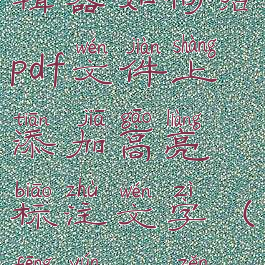 辑器如何给
wén jiàn shàng
pdf文件上
tiān jiā gāo liàng
添加高亮
biāo zhù wén zì
标注文字（